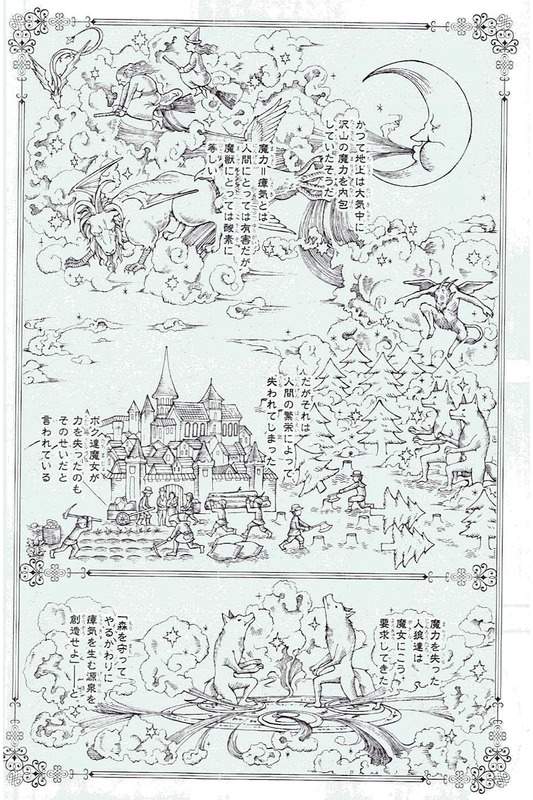 かつて地上は大気中に
沢山の魔力を内包
していたそうだ
魔力＝瘴気とは
人間にとっては有害だが
魔獣にとっては酸素に
等しい
だがそれは
人間の繁栄によって
失われてしまった
ボク達魔女が
力を失ったのも
そのせいだと
言われている
魔力を失った
人狼達は
魔女にこう
要求してきた
「森を守って
やるかわりに
瘴気を生む源泉を
創造せよ」――と